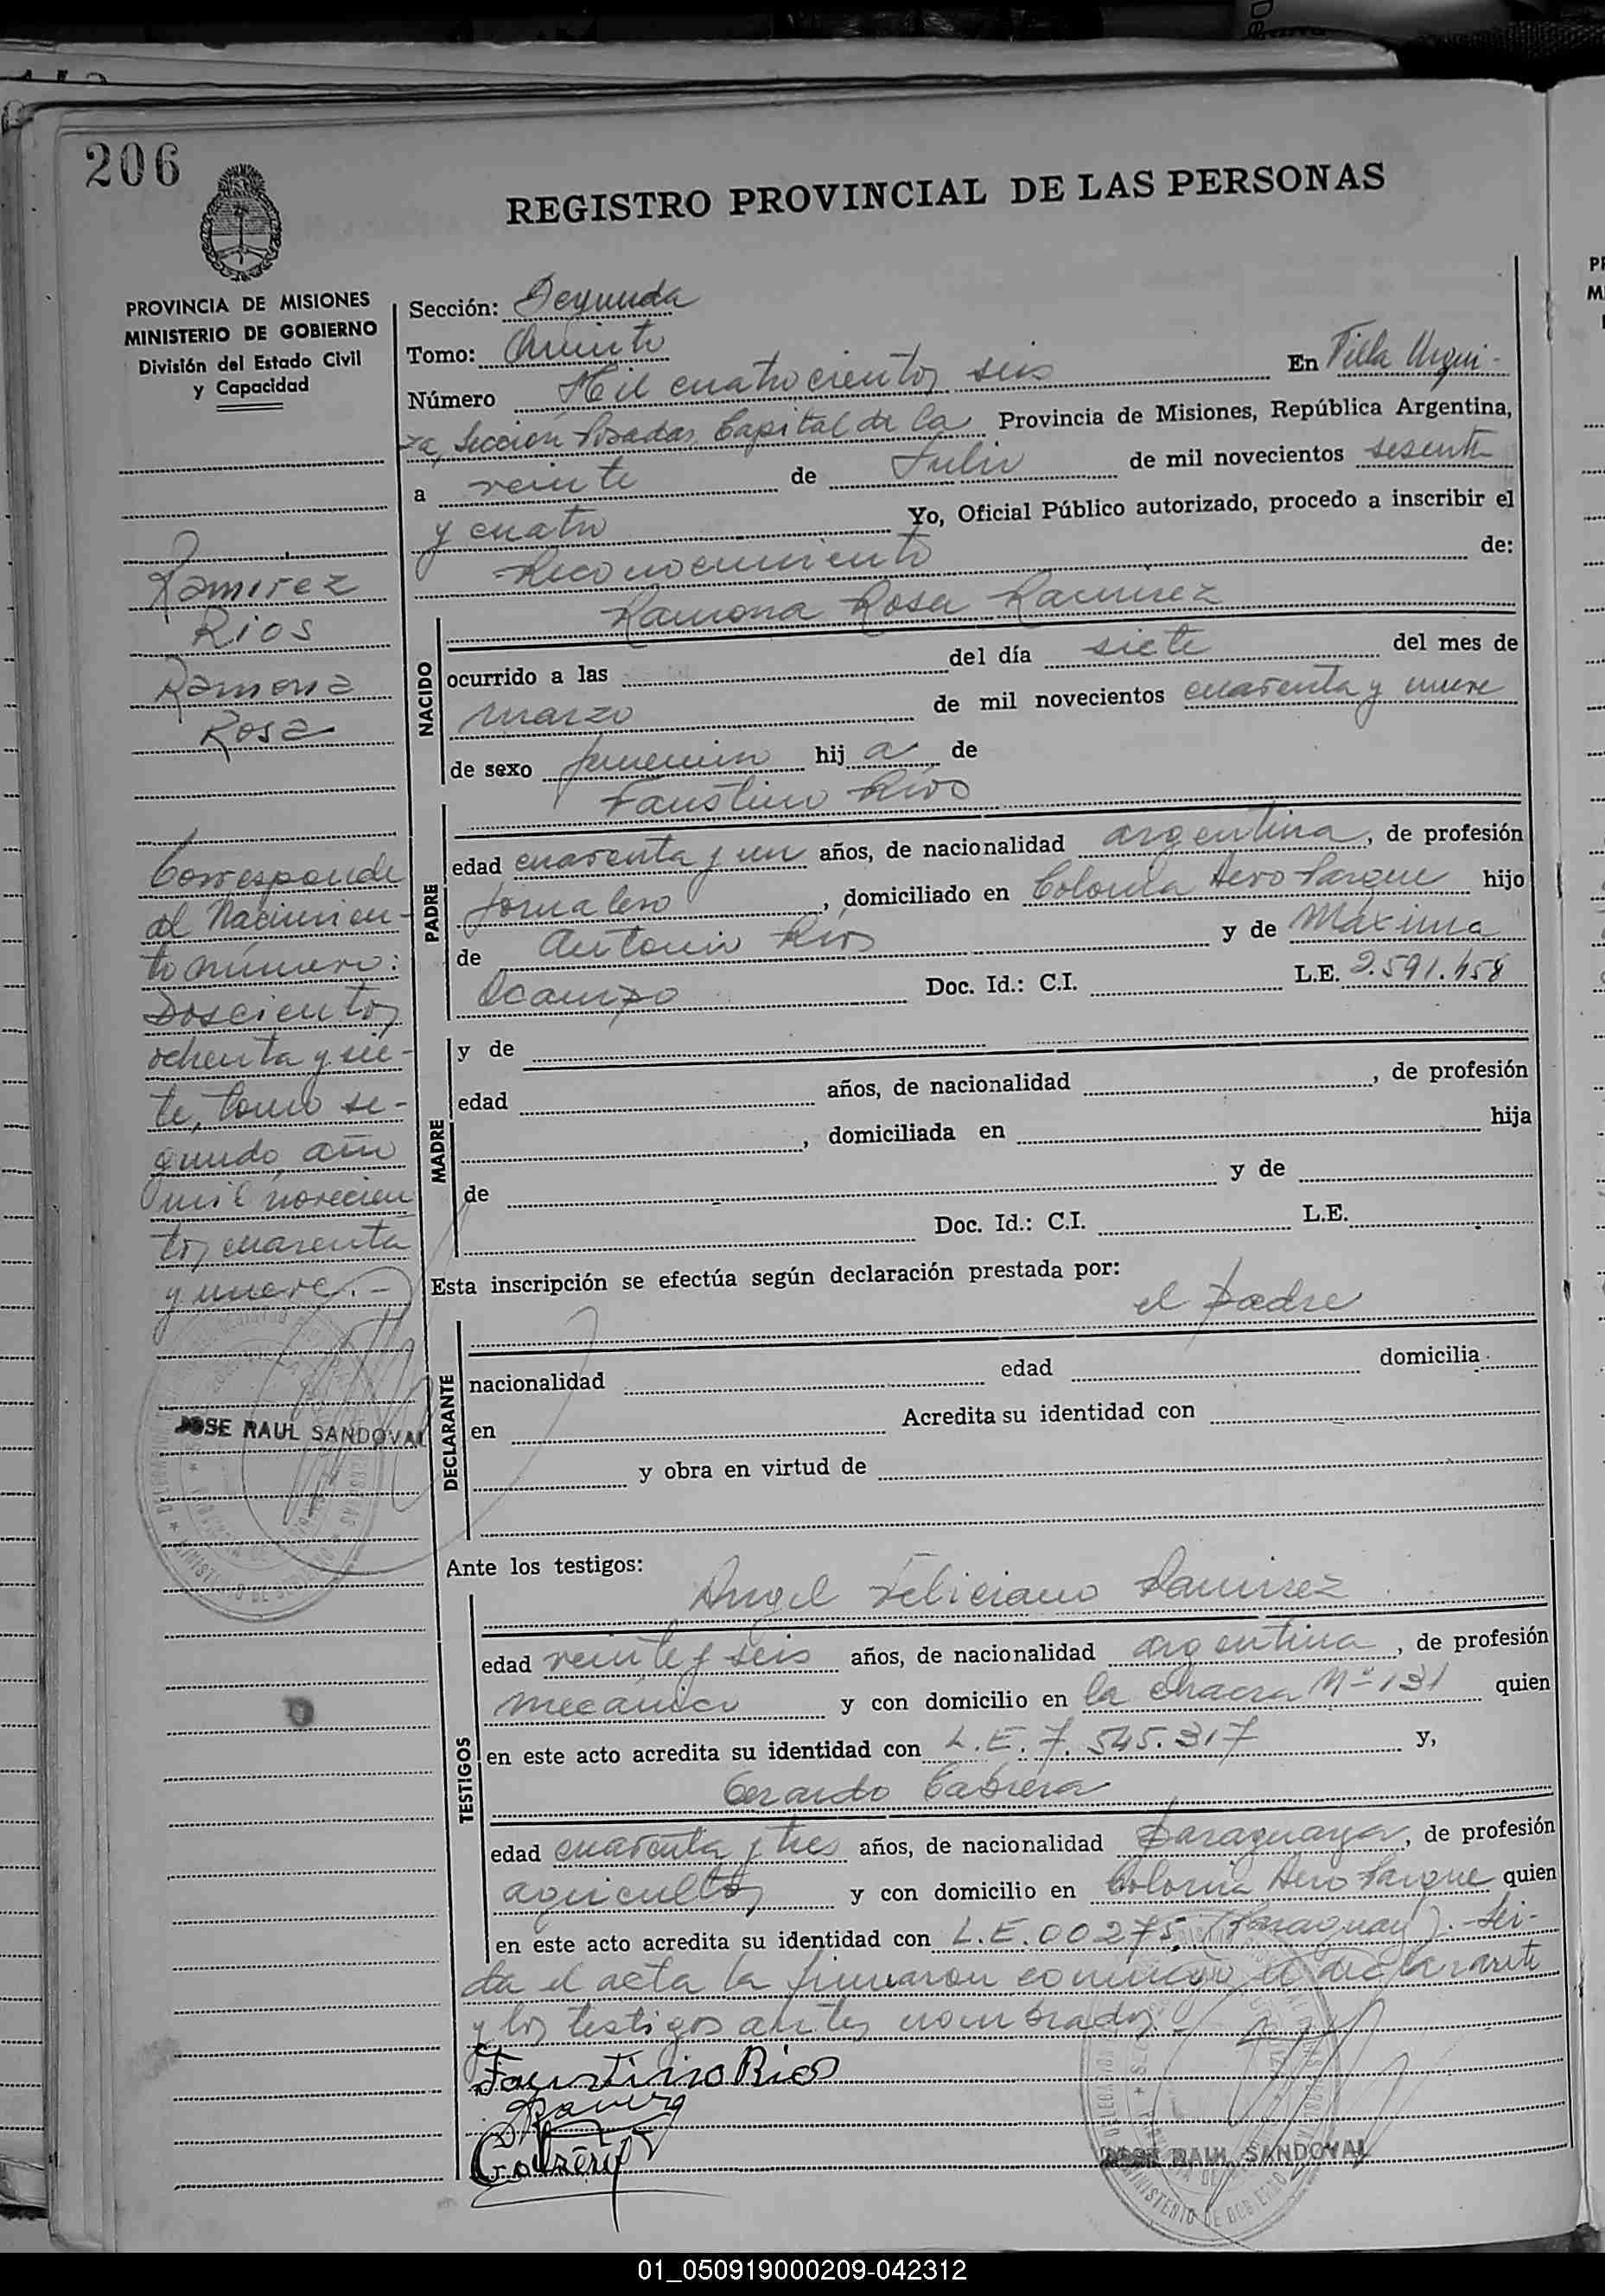 206
REGISTRO PROVINCIAL DE LAS PERSONAS
PROVINCIA DE MISIONES
MINISTERIO DE GOBIERNO
División del Estado Civil
y Capacidad
Sección: Segunda
Tomo: Quinto
Número Mil cuatrocientos seis En Villa Urqui-
za, Sección Posadas Capital de la Provincia de Misiones, República Argentina,
a veinte de Julio de mil novecientos sesenta
y cuatro Yo, Oficial Público autorizado, procedo a inscribir el
Reconocimiento de:
Ramirez
Rios
Ramona
Rosa
NACIDO
Ramona Rosa Ramirez
ocurrido a las del día siete del mes de
marzo de mil novecientos cuarenta y nueve
de sexo femenino hij a de
PADRE
Faustino Rios
edad cuarenta y un años, de nacionalidad argentina, de profesión
jornalero, domiciliado en Colonia Aero Parque hijo
de Antonio Rios y de Maxima
Ocampo Doc. Id.: C.I. L.E. 2.591.458
Corresponde
al Nacimien-
to número:
Doscientos
ochenta y sie-
te, tomo se-
gundo, año
mil novecien
tos cuarenta
y nueve.-
JOSE RAUL SANDOVAL
MADRE
y de
edad años, de nacionalidad , de profesión
, domiciliada en hija
de y de
Doc. Id.: C.I. L.E.
Esta inscripción se efectúa según declaración prestada por:
el padre
DECLARANTE
nacionalidad edad domicilia
en Acredita su identidad con
y obra en virtud de
Ante los testigos:
TESTIGOS
Angel Feliciano Ramirez
edad veinte y seis años, de nacionalidad argentina, de profesión
mecánico y con domicilio en la chacra Nº 131 quien
en este acto acredita su identidad con L.E. 7.545.317 y,
Gerardo Cabrera
edad cuarenta y tres años, de nacionalidad paraguaya, de profesión
agricultor y con domicilio en Colonia Aero Parque quien
en este acto acredita su identidad con L.E. 00275, (Paraguay).- Lei-
da el acta la firmaron conmigo el declarante
y los testigos antes nombrados.-
Faustino Rios
Ramirez
Cabrera
JOSE RAUL SANDOVAL
01_050919000209-042312